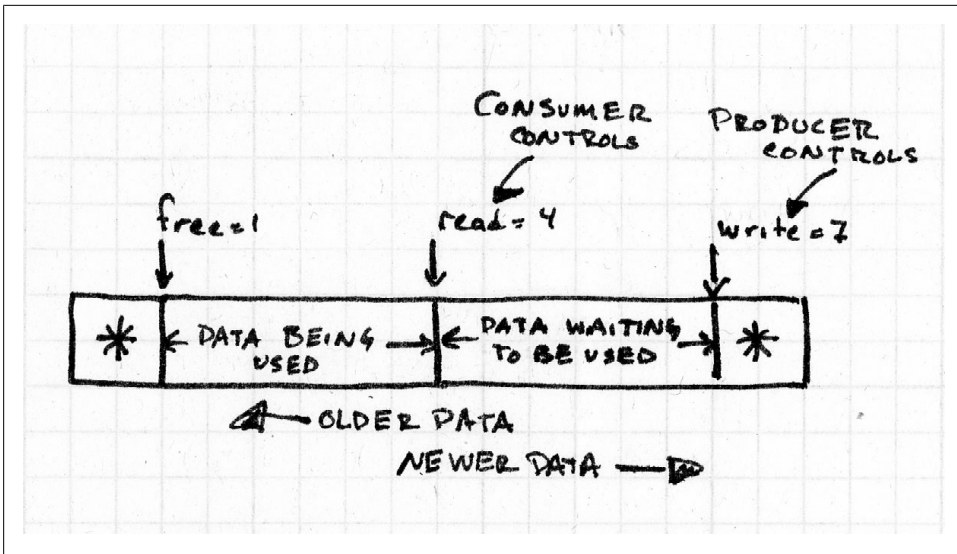 CONSUMER
CONTROLS
PRODUCER
CONTROLS
free=1
read=4
write=7
*
DATA BEING
USED
DATA WAITING
TO BE USED
*
OLDER DATA
NEWER DATA